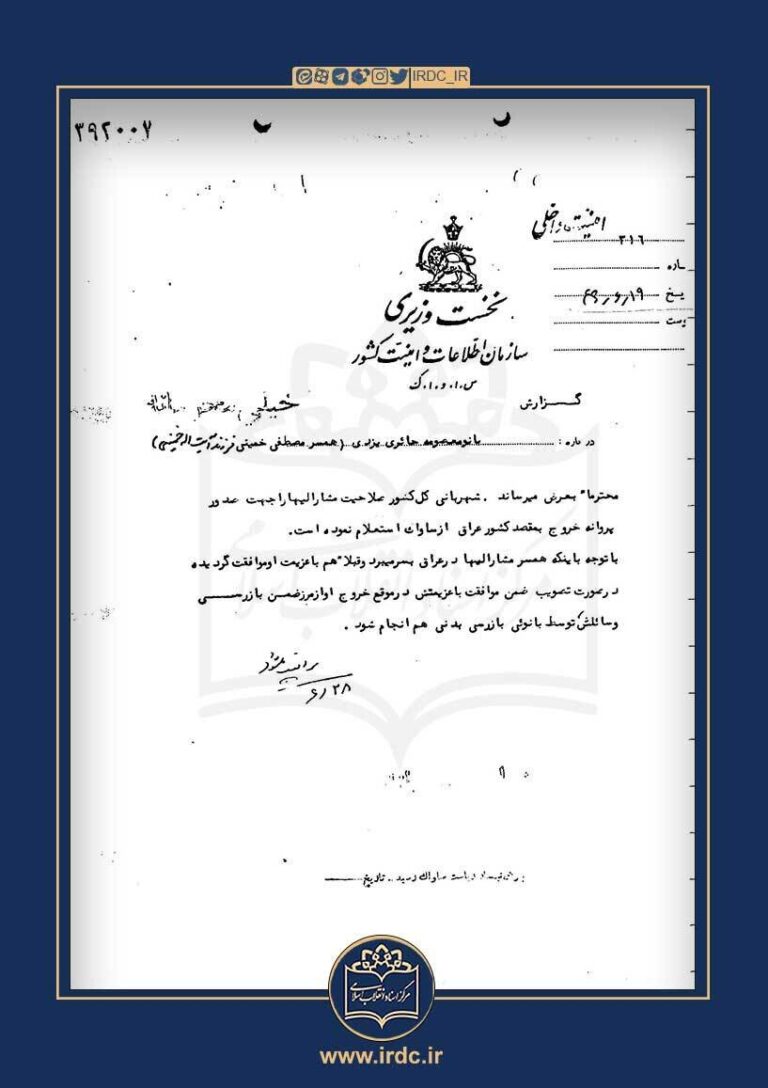 IRDC_IR
۳۹۲۰۰۷
امنیت داخلی
۳۱٦
ـاره
ـیخ ۴۹٫٦٫۱۹
ـوست
نخست وزیری
سازمان اطلاعات و امنیت کشور
س.ا.و.ا.ک
گـــزارش
درباره : بانو معصومه حائری یزدی (همسر مصطفی خمینی فرزند آیت اله خمینی)
محترما" بعرض میرساند . شهربانی کل کشور صلاحیت مشارالیها را جهت صدور
پروانه خروج بمقصد کشور عراق از ساواک استعلام نموده است.
با توجه باینکه همسر مشارالیها در عراق بسر میبرد و قبلا" هم با عزیمت او موافقت گردیده
در صورت تصویب ضمن موافقت با عزیمتش در موقع خروج او از مرز ضمن بازرســـی
وسائلش توسط بانوئی بازرسی بدنی هم انجام شود .
٦٫۲۸
ریاست ساواک رسید .. تاریخ
مرکز اسناد انقلاب اسلامی
www.irdc.ir